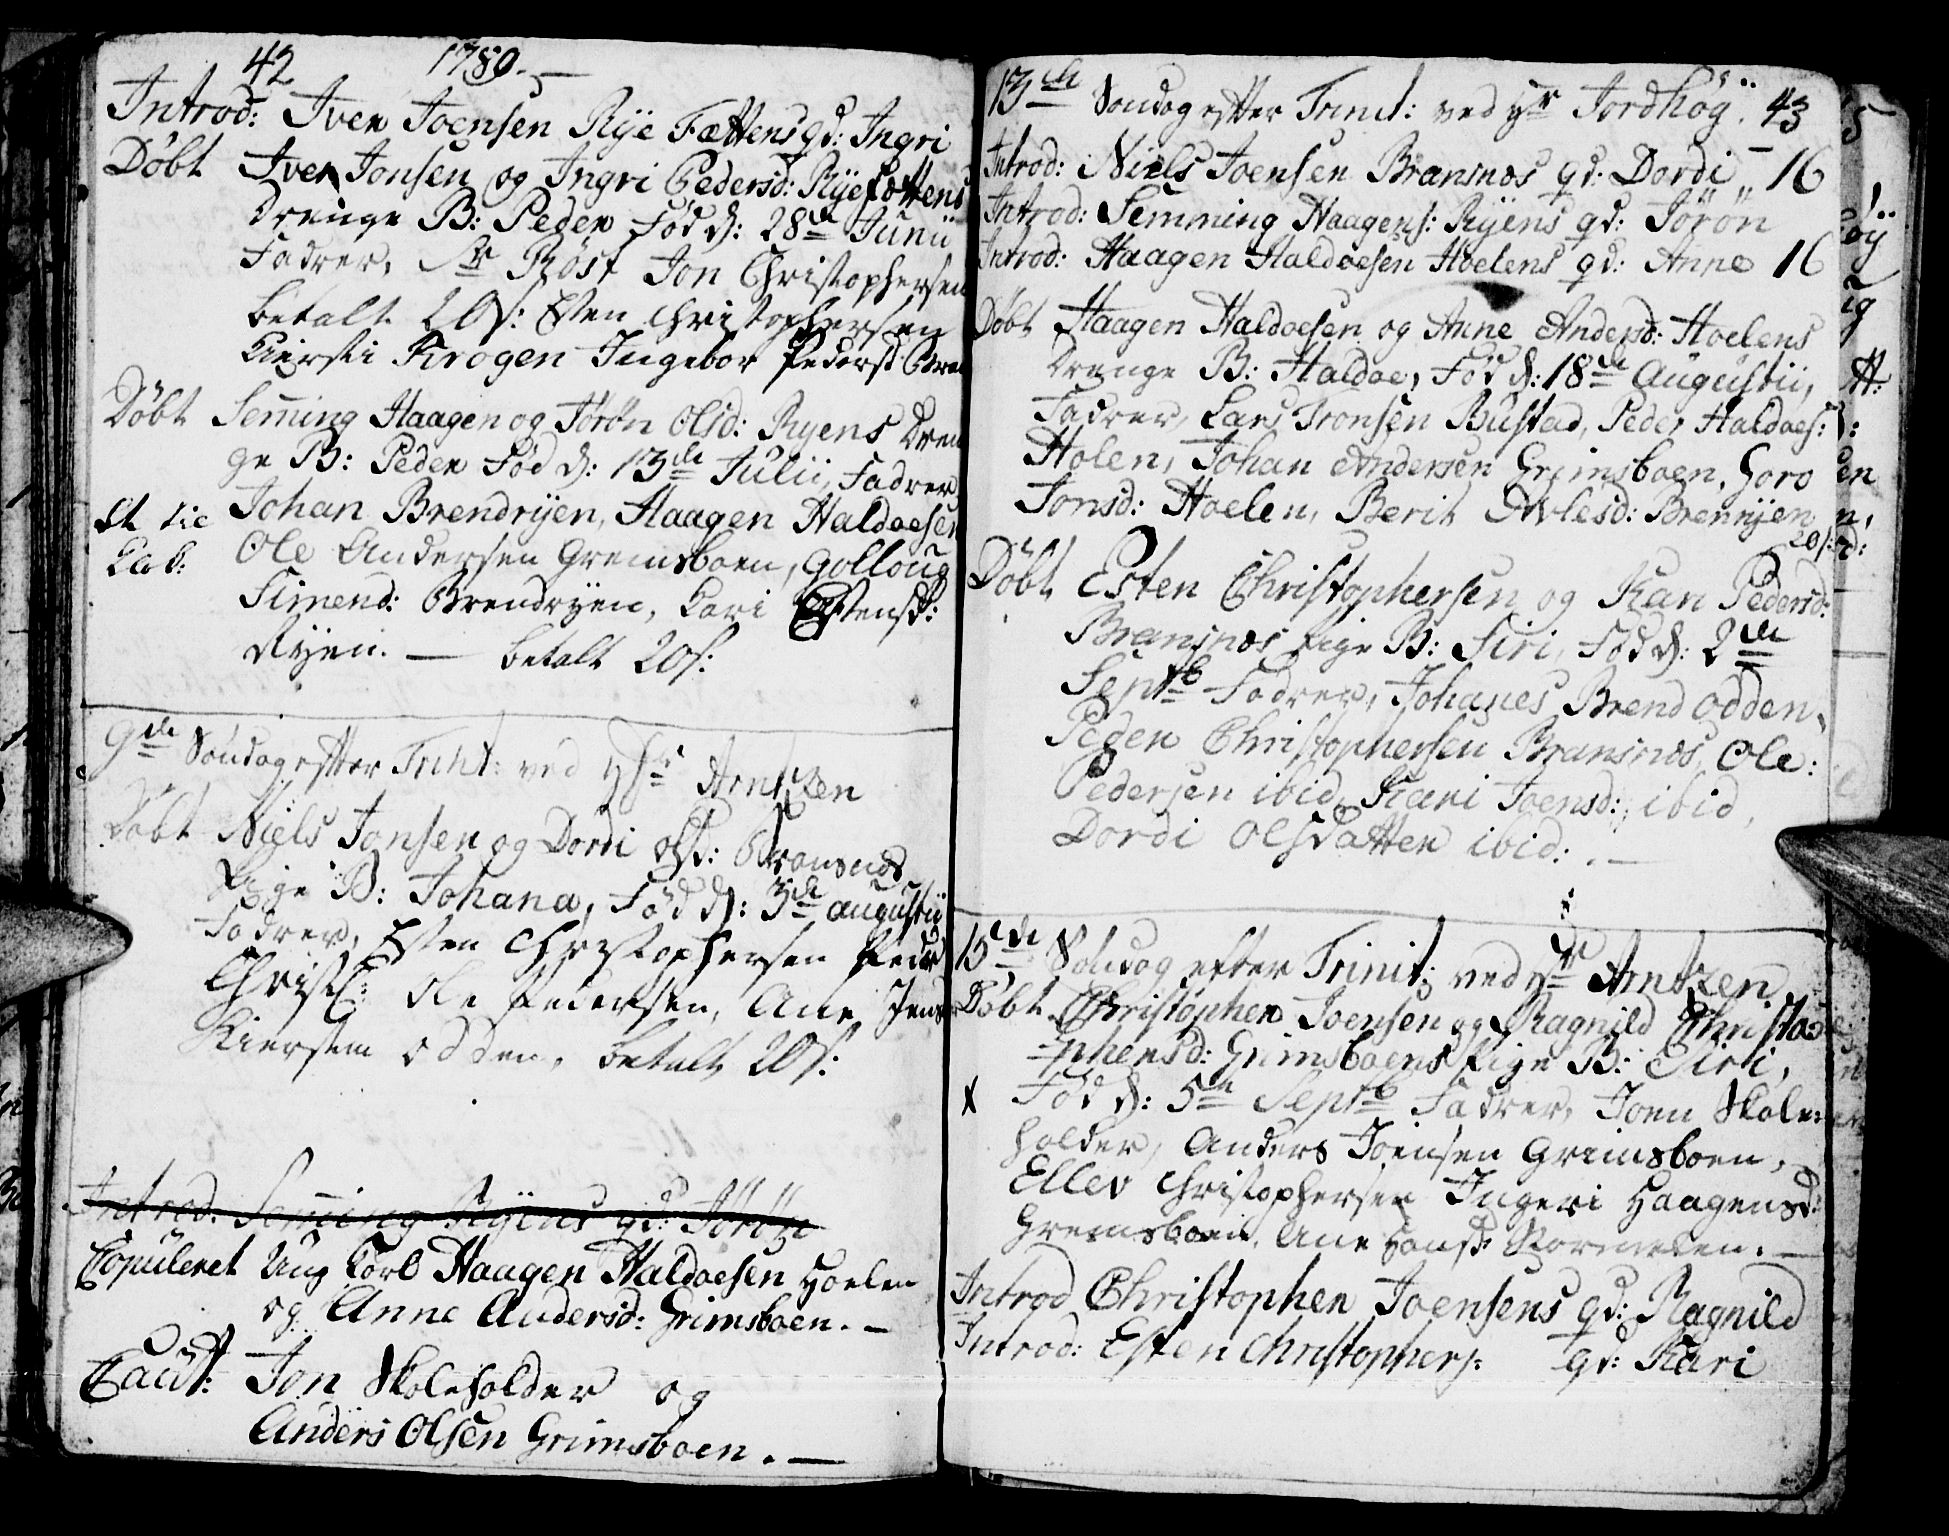 42 1789. —
Introd: Iver Joensen Rye Fættens qd: Ingri
Døbt Iver Jonsen og Ingri Pedersd: Rye fættens
Drenge B: Peder Fød d: 28de Junii
Fadrer, Sr Røst Jon Christophersen
betalt 20 s: Esten Christophersen
Kiersti Krogen Ingebor Pedersd
Døbt Seming Haagen og Jørøn Olsd: Ryens Dren
ge B: Peder Fød d: 13de Julii, Fadrer
Johan Brendryen, Haagen Haldoesen
Ole Andersen Gremsboen, Golloug
Simend: Brendryen, Kari Estensd:
Ryen. — betalt 20 s:
9de Søndag efter Trinit: ved Hr Arntzen
Døbt Niels Jonsen og Dordi Olsd: Bransnæs
Pige B: Johana, Fød d: 3de Augustii
Fadrer, Esten Christophersen Peder
Christ: Ole Pedersen, Ane
odden, betalt 20 s:
Introd: Seming Ryens qd: Jørøn
Copuleret Ung Karl Haagen Haldoesen Hoelen
og Anne Andersd: Grimsboen. —
Caut: Jon Skoleholder og
Anders Olsen Grimsboen. —
13de Søndag efter Trinit: ved Hr Jordhøg. 43
Introd: Niels Joensen Bransnæs qd: Dordi 16
Introd: Semming Haagens: Ryens qd: Jørøn
Introd: Haagen Haldoesen Hoelens qd: Anne 16
Døbt Haagen Haldoesen og Anne Andersd: Hoelens
Drenge B: Haldoe, Fød d: 18de Augustii,
Fadrer, Lars Tronsen Bustad, Peder Haldoes:
Holen, Johan Andersen Grimsboen, Goro
Jonsd: Hoelen, Berit Avlesd: Brenryen
20 s:
Døbt Esten Christophersen og Kari Pedersd:
Bransnæs Pige B: Siri, Fød d: 2de
Septb Fadrer, Johanes Brend odden,
Peder Christophersen Bransnæs, Ole:
Pedersen ibid, Kari Joensd: ibid,
Dordi Olsdatter ibid: . —
15de Søndag efter Trinit: ved Hr Arntzen
Døbt Christopher Joensen og Ragnild Christo=
phersd: Grimsboens Pige B: Siri,
x Fød d: 5te Septb Fadrer, Joen Skole=
holder, Anders Joensen Grimsboen,
Ellev Christophersen Ingeri Haagensd:
Gremsboen, Ane Hansd: —
Introd Christopher Joensens qd: Ragnild
Introd: Esten Christophers: qd: Kari